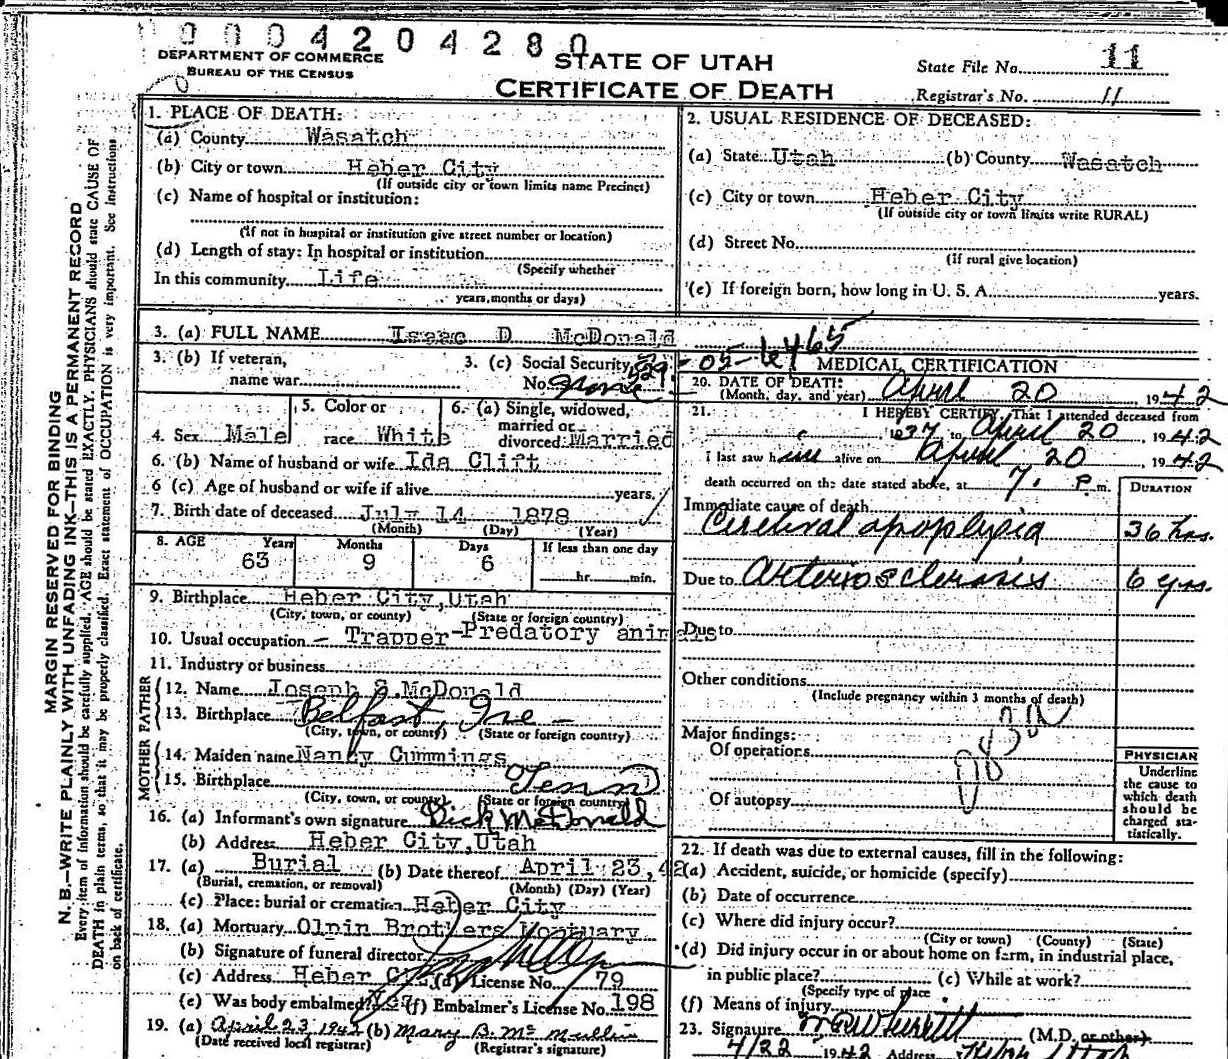 0004204280
DEPARTMENT OF COMMERCE
BUREAU OF THE CENSUS
STATE OF UTAH
CERTIFICATE OF DEATH
State File No. 11
Registrar's No. 11
MARGIN RESERVED FOR BINDING
N. B.—WRITE PLAINLY WITH UNFADING INK—THIS IS A PERMANENT RECORD
Every item of information should be carefully supplied. AGE should be stated EXACTLY. PHYSICIANS should state CAUSE OF
DEATH in plain terms, so that it may be properly classified. Exact statement of OCCUPATION is very important. See instructions
on back of certificate.
1. PLACE OF DEATH:
(a) County Wasatch
(b) City or town Heber City
(If outside city or town limits name Precinct)
(c) Name of hospital or institution:
(If not in hospital or institution give street number or location)
(d) Length of stay: In hospital or institution
(Specify whether
In this community Life
years, months or days)
2. USUAL RESIDENCE OF DECEASED:
(a) State Utah (b) County Wasatch
(c) City or town Heber City
(If outside city or town limits write RURAL)
(d) Street No.
(If rural give location)
(e) If foreign born, how long in U. S. A. years.
3. (a) FULL NAME Isaac D McDonald
3. (b) If veteran,
name war
3. (c) Social Security 529-05-6465
No. None
4. Sex Male
5. Color or
race White
6. (a) Single, widowed,
married or
divorced Married
6. (b) Name of husband or wife Ida Clift
6 (c) Age of husband or wife if alive years.
7. Birth date of deceased July 14 1878
(Month) (Day) (Year)
8. AGE Years Months Days If less than one day
63 9 6 hr. min.
9. Birthplace Heber City, Utah
(City, town, or county) (State or foreign country)
10. Usual occupation — Trapper-Predatory animals
11. Industry or business
FATHER
12. Name Joseph S. McDonald
13. Birthplace Belfast, Ire —
(City, town, or county) (State or foreign country)
MOTHER
14. Maiden name Nancy Cummings
15. Birthplace Tenn
(City, town, or county) (State or foreign country)
16. (a) Informant's own signature Dick McDonald
(b) Address Heber City, Utah
17. (a) Burial (b) Date thereof April 23, 42
(Burial, cremation, or removal) (Month) (Day) (Year)
(c) Place: burial or cremation Heber City
18. (a) Mortuary Olpin Brothers Mortuary
(b) Signature of funeral director
(c) Address Heber City (d) License No. 79
(e) Was body embalmed yes (f) Embalmer's License No. 198
19. (a) April 23 1942 (b) Mary B. McMullin
(Date received local registrar) (Registrar's signature)
MEDICAL CERTIFICATION
20. DATE OF DEATH: April 20, 1942
(Month, day, and year)
21. I HEREBY CERTIFY, That I attended deceased from
1937 to April 20, 1942
I last saw him alive on April 20, 1942
death occurred on the date stated above, at 7. P.m.
DURATION
Immediate cause of death
Cerebral apoplyxia 36 hrs.
Due to Arteriosclerosis 6 yrs.
Due to
Other conditions
(Include pregnancy within 3 months of death)
Major findings:
Of operations
Of autopsy
PHYSICIAN
Underline
the cause to
which death
should be
charged sta-
tistically.
22. If death was due to external causes, fill in the following:
(a) Accident, suicide, or homicide (specify)
(b) Date of occurrence
(c) Where did injury occur?
(City or town) (County) (State)
(d) Did injury occur in or about home on farm, in industrial place,
in public place? (e) While at work?
(Specify type of place
(f) Means of injury
23. Signature (M.D. or other)
4/22 1942 Address